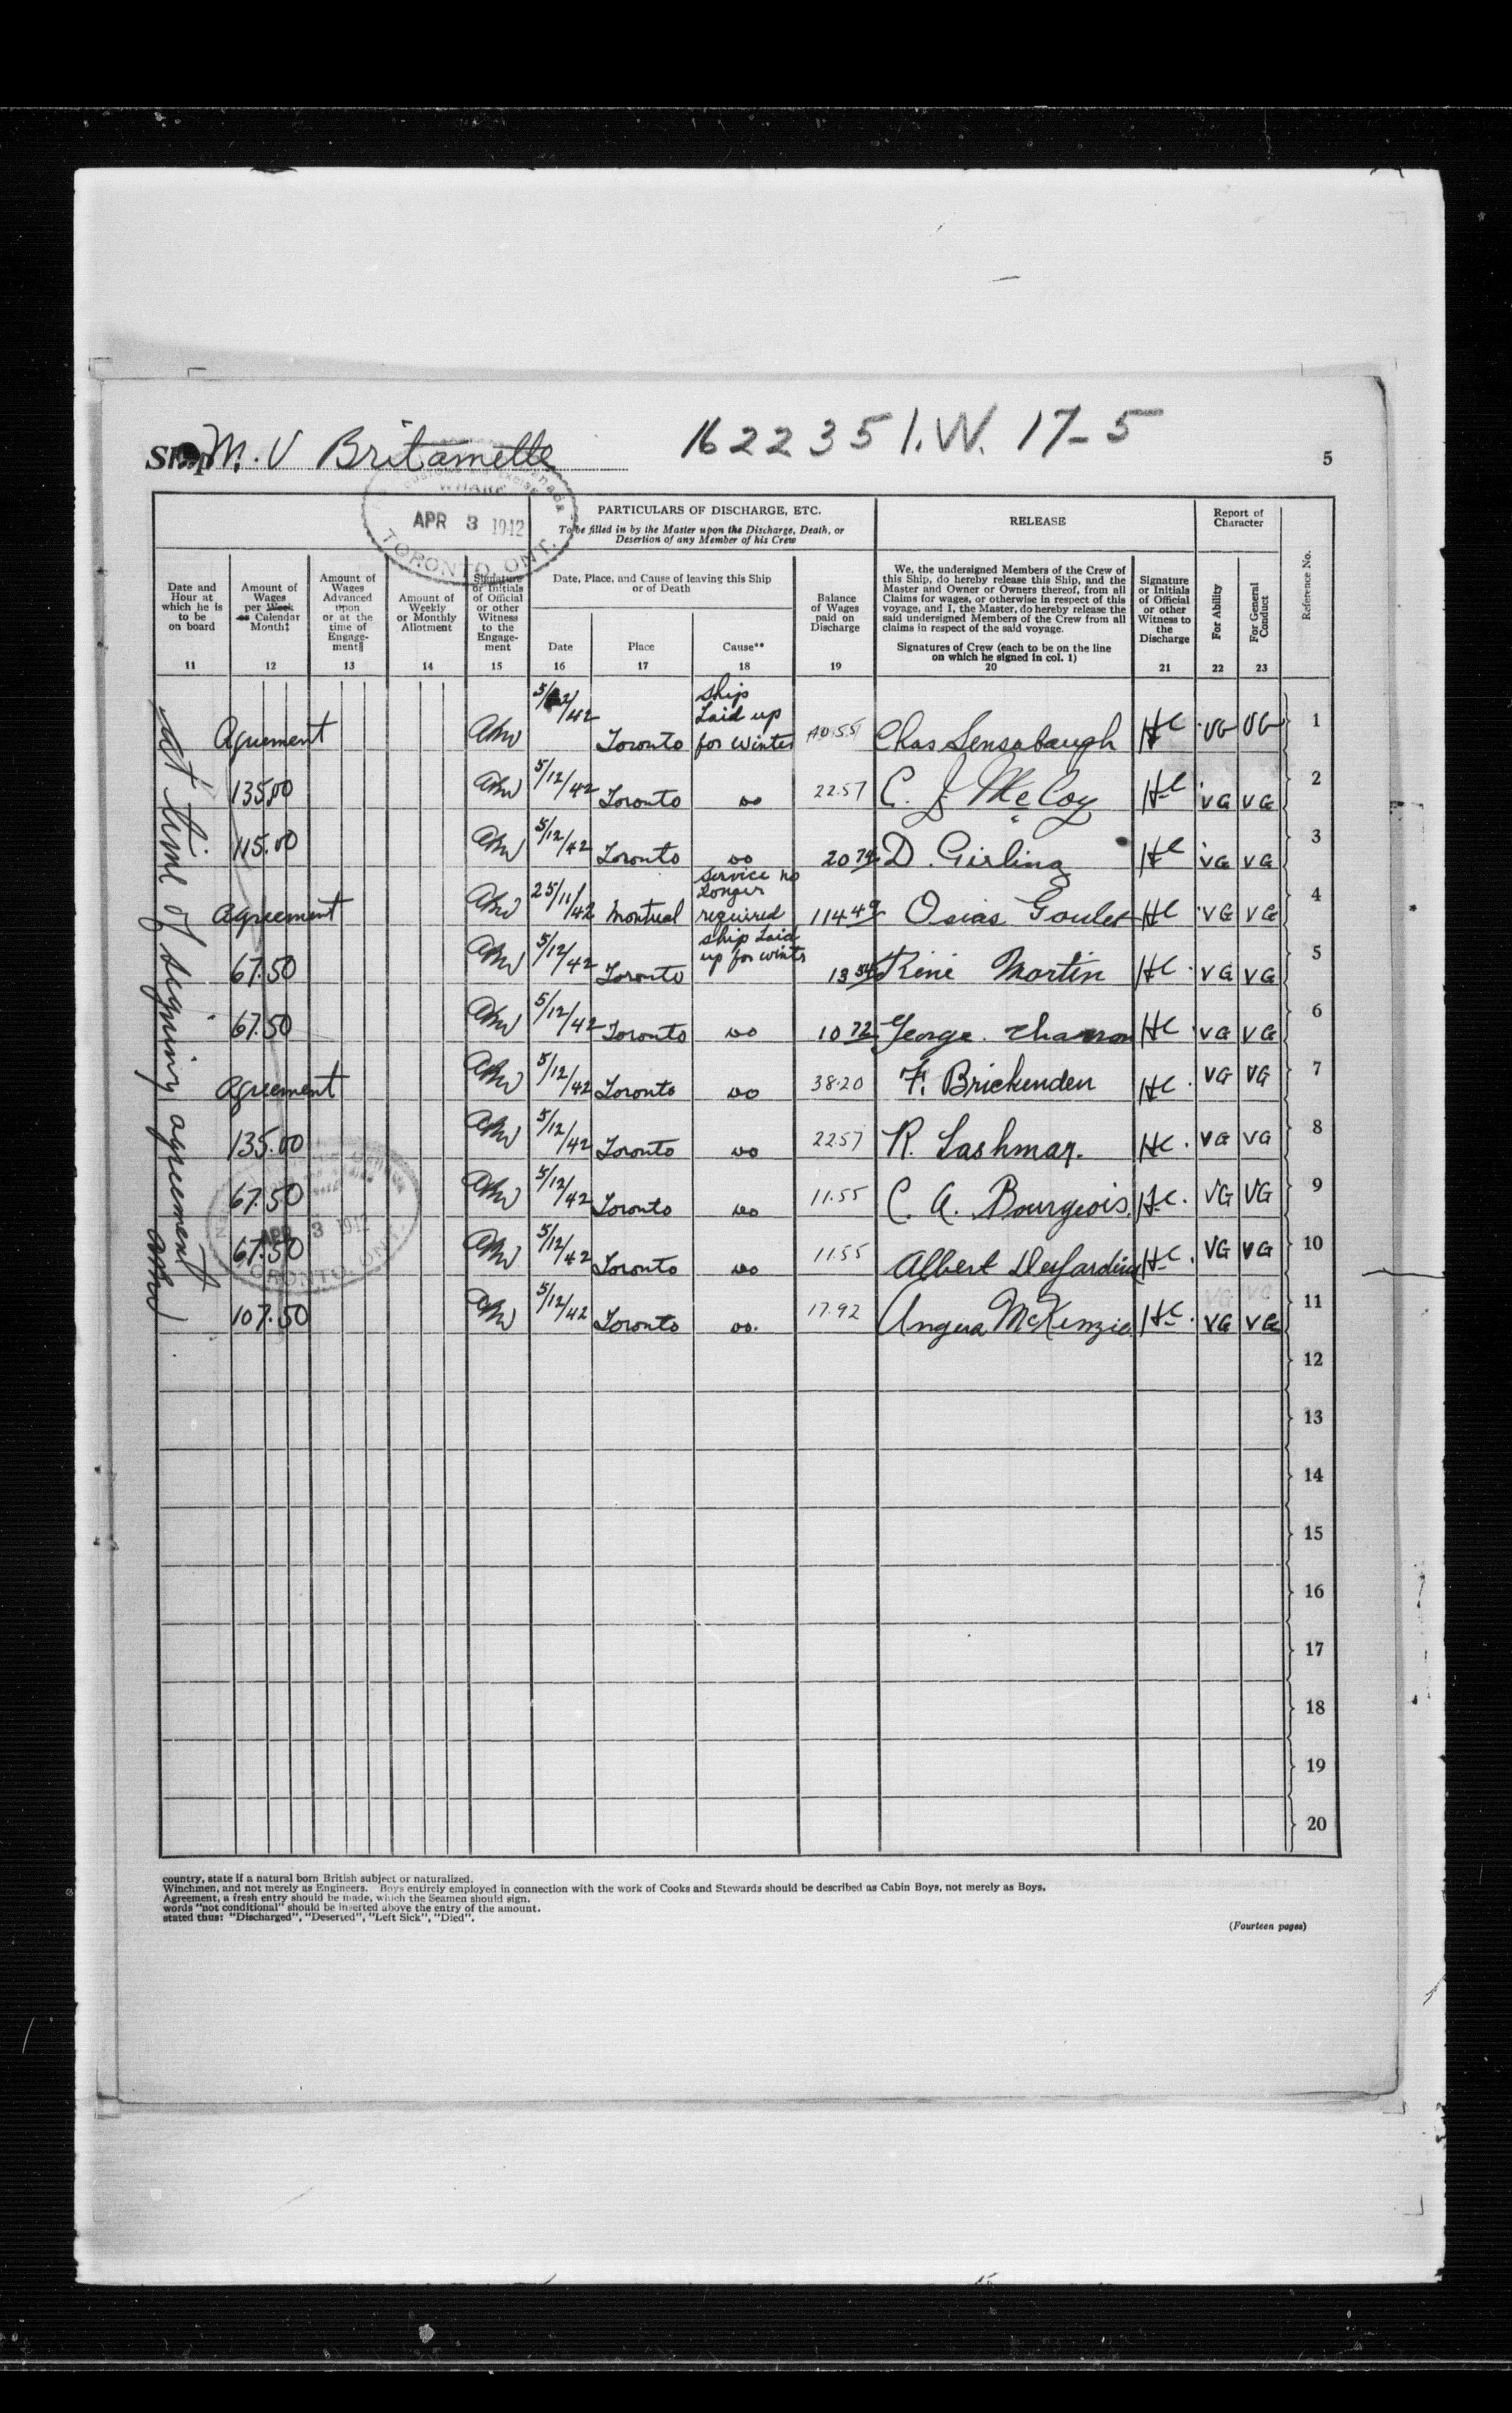 Ship M.V Britamette
162235 I.W. 17-5
5
WHARF
APR 3 1942
TORONTO, ONT.
PARTICULARS OF DISCHARGE, ETC.
To be filled in by the Master upon the Discharge, Death, or
Desertion of any Member of his Crew
RELEASE
Report of
Character
Reference No.
Date and
Hour at
which he is
to be
on board
11
Amount of
Wages
per Week
or Calendar
Month‡
12
Amount of
Wages
Advanced
upon
or at the
time of
Engage-
ment‖
13
Amount of
Weekly
or Monthly
Allotment
14
Signature
or Initials
of Official
or other
Witness
to the
Engage-
ment
15
Date, Place, and Cause of leaving this Ship
or of Death
Date
16
Place
17
Cause**
18
Balance
of Wages
paid on
Discharge
19
We, the undersigned Members of the Crew of
this Ship, do hereby release this Ship, and the
Master and Owner or Owners thereof, from all
Claims for wages, or otherwise in respect of this
voyage, and I, the Master, do hereby release the
said undersigned Members of the Crew from all
claims in respect of the said voyage.
Signatures of Crew (each to be on the line
on which he signed in col. 1)
20
Signature
or Initials
of Official
or other
Witness to
the
Discharge
21
For Ability
22
For General
Conduct
23
at time of signing agreement
Agreement 5/12/42 Toronto ship laid up for winter Chas Sensabaugh HC VG VG 1
135.00 5/12/42 Toronto do 22.57 C. J McCoy HC VG VG 2
115.00 5/12/42 Toronto do D. Girling HC VG VG 3
Agreement 25/11/42 Montreal service no longer required 114 49 Osias Goulet HC VG VG 4
67.50 5/12/42 Toronto ship laid up for winter 13 54 Rene Martin HC VG VG 5
67.50 5/12/42 Toronto do 10 72 George HC VG VG 6
Agreement 5/12/42 Toronto do 38.20 F. Brickenden HC VG VG 7
135.00 5/12/42 Toronto do 22.57 R. Lashmar. HC VG VG 8
67.50 5/12/42 Toronto do 11.55 C. A. Bourgeois. HC VG VG 9
67.50 5/12/42 Toronto do 11.55 Albert Desjardins HC VG VG 10
107.50 5/12/42 Toronto do. 17.92 Angus McKenzie HC VG VG 11
APR 3 1942
TORONTO, ONT.
12
13
14
15
16
17
18
19
20
country, state if a natural born British subject or naturalized.
Winchmen, and not merely as Engineers. Boys entirely employed in connection with the work of Cooks and Stewards should be described as Cabin Boys, not merely as Boys.
Agreement, a fresh entry should be made, which the Seamen should sign.
words "not conditional" should be inserted above the entry of the amount.
stated thus: "Discharged", "Deserted", "Left Sick", "Died".
(Fourteen pages)